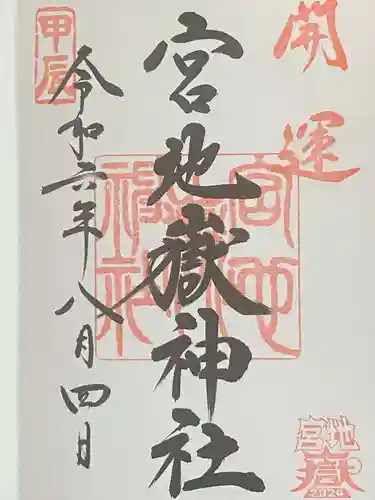 開運
宮地嶽神社
令和六年八月四日
甲辰
宮地嶽神社
宮地
嶽
2024